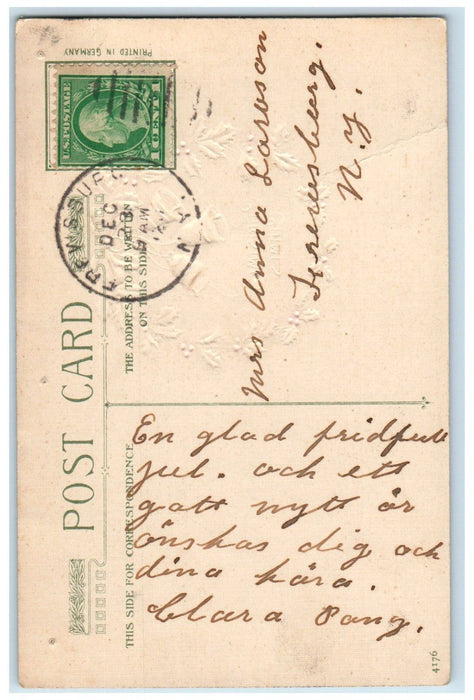 PRINTED IN GERMANY
U.S. POSTAGE
1 CENT 1
DEC
28
9 AM
POST CARD
THE ADDRESS TO BE WRITTEN
ON THIS SIDE
Mrs Anna Larson
Frewsburg.
N.Y.
THIS SIDE FOR CORRESPONDENCE
En glad fridfull
jul. och ett
gott nytt år
önskas dig och
dina kära.
Clara Pang.
4176